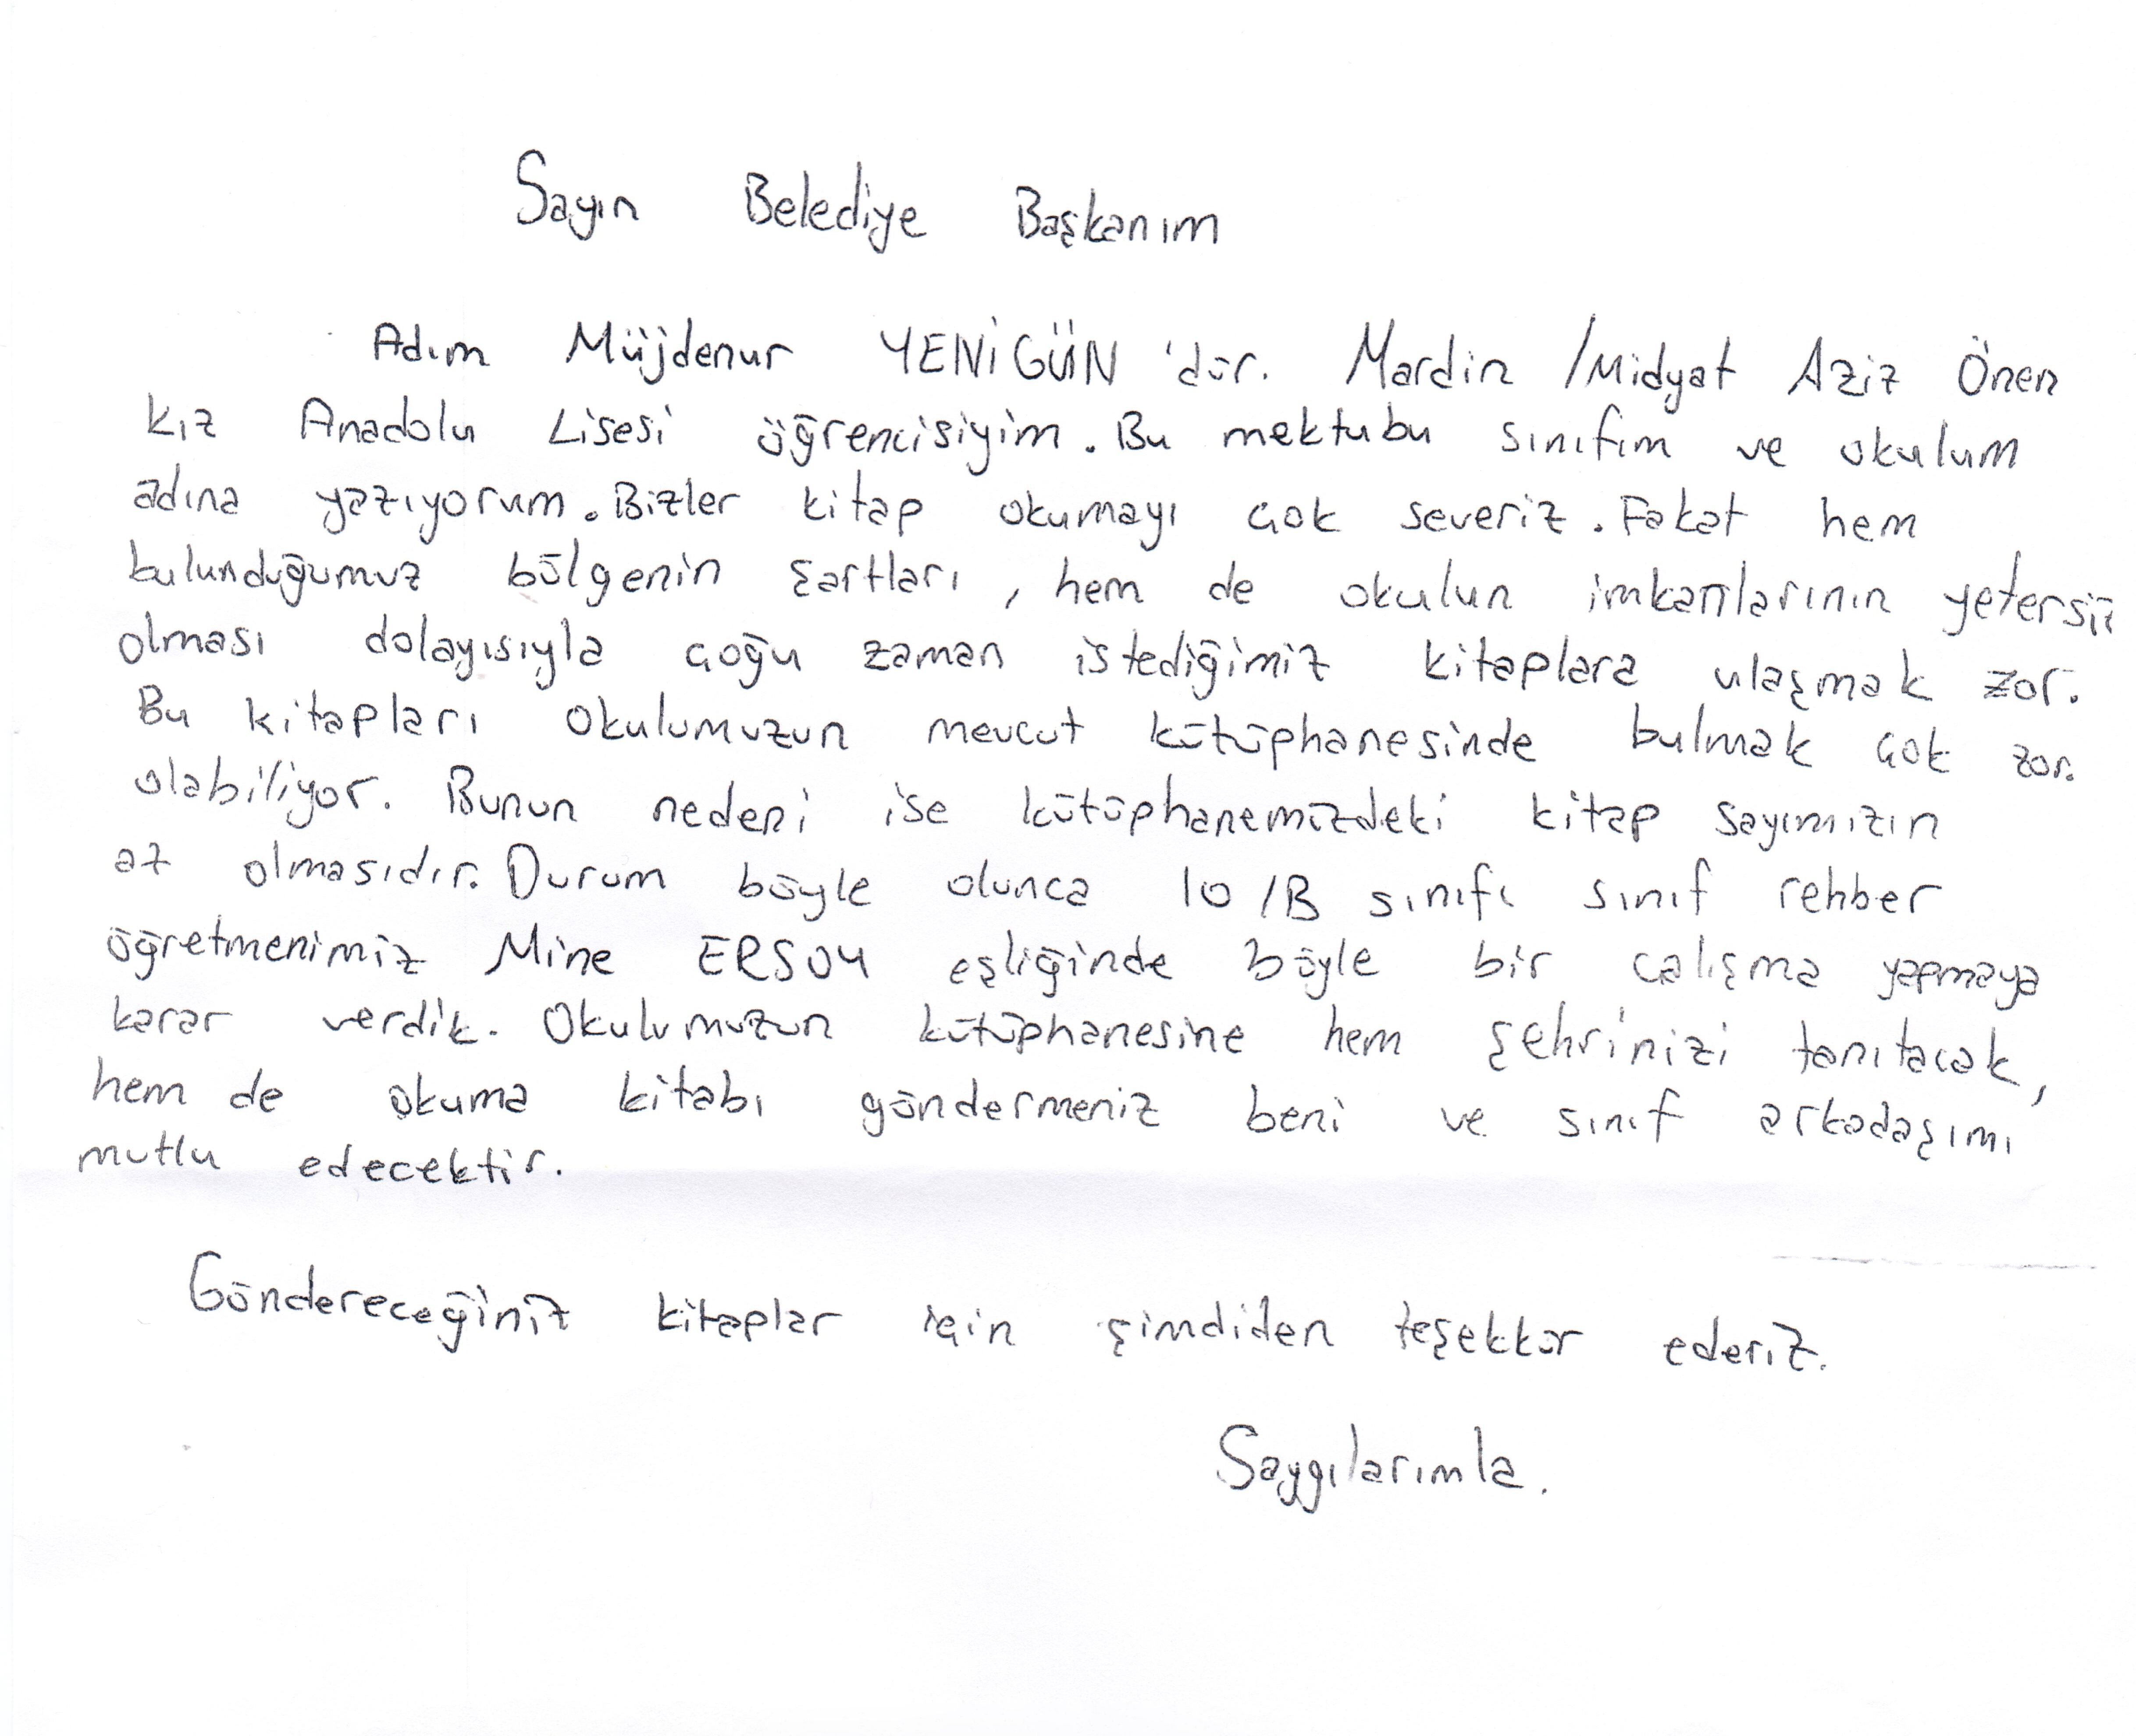 Sayın Belediye Başkanım
Adım Müjdenur YENİGÜN 'dür. Mardin /Midyat Aziz Önen
Kız Anadolu Lisesi öğrencisiyim. Bu mektubu sınıfım ve okulum
adına yazıyorum. Bizler kitap okumayı çok severiz. Fakat hem
bulunduğumuz bölgenin şartları, hem de okulun imkanlarının yetersiz
olması dolayısıyla çoğu zaman istediğimiz kitaplara ulaşmak zor.
Bu kitapları okulumuzun mevcut kütüphanesinde bulmak çok zor.
olabiliyor. Bunun nedeni ise kütüphanemizdeki kitap sayımızın
az olmasıdır. Durum böyle olunca 10/B sınıfı sınıf rehber
öğretmenimiz Mine ERSOY eşliğinde böyle bir çalışma yapmaya
karar verdik. Okulumuzun kütüphanesine hem şehrinizi tanıtacak,
hem de okuma kitabı göndermeniz beni ve sınıf arkadaşımı
mutlu edecektir.
Göndereceğiniz kitaplar için şimdiden teşekkür ederiz.
Saygılarımla.